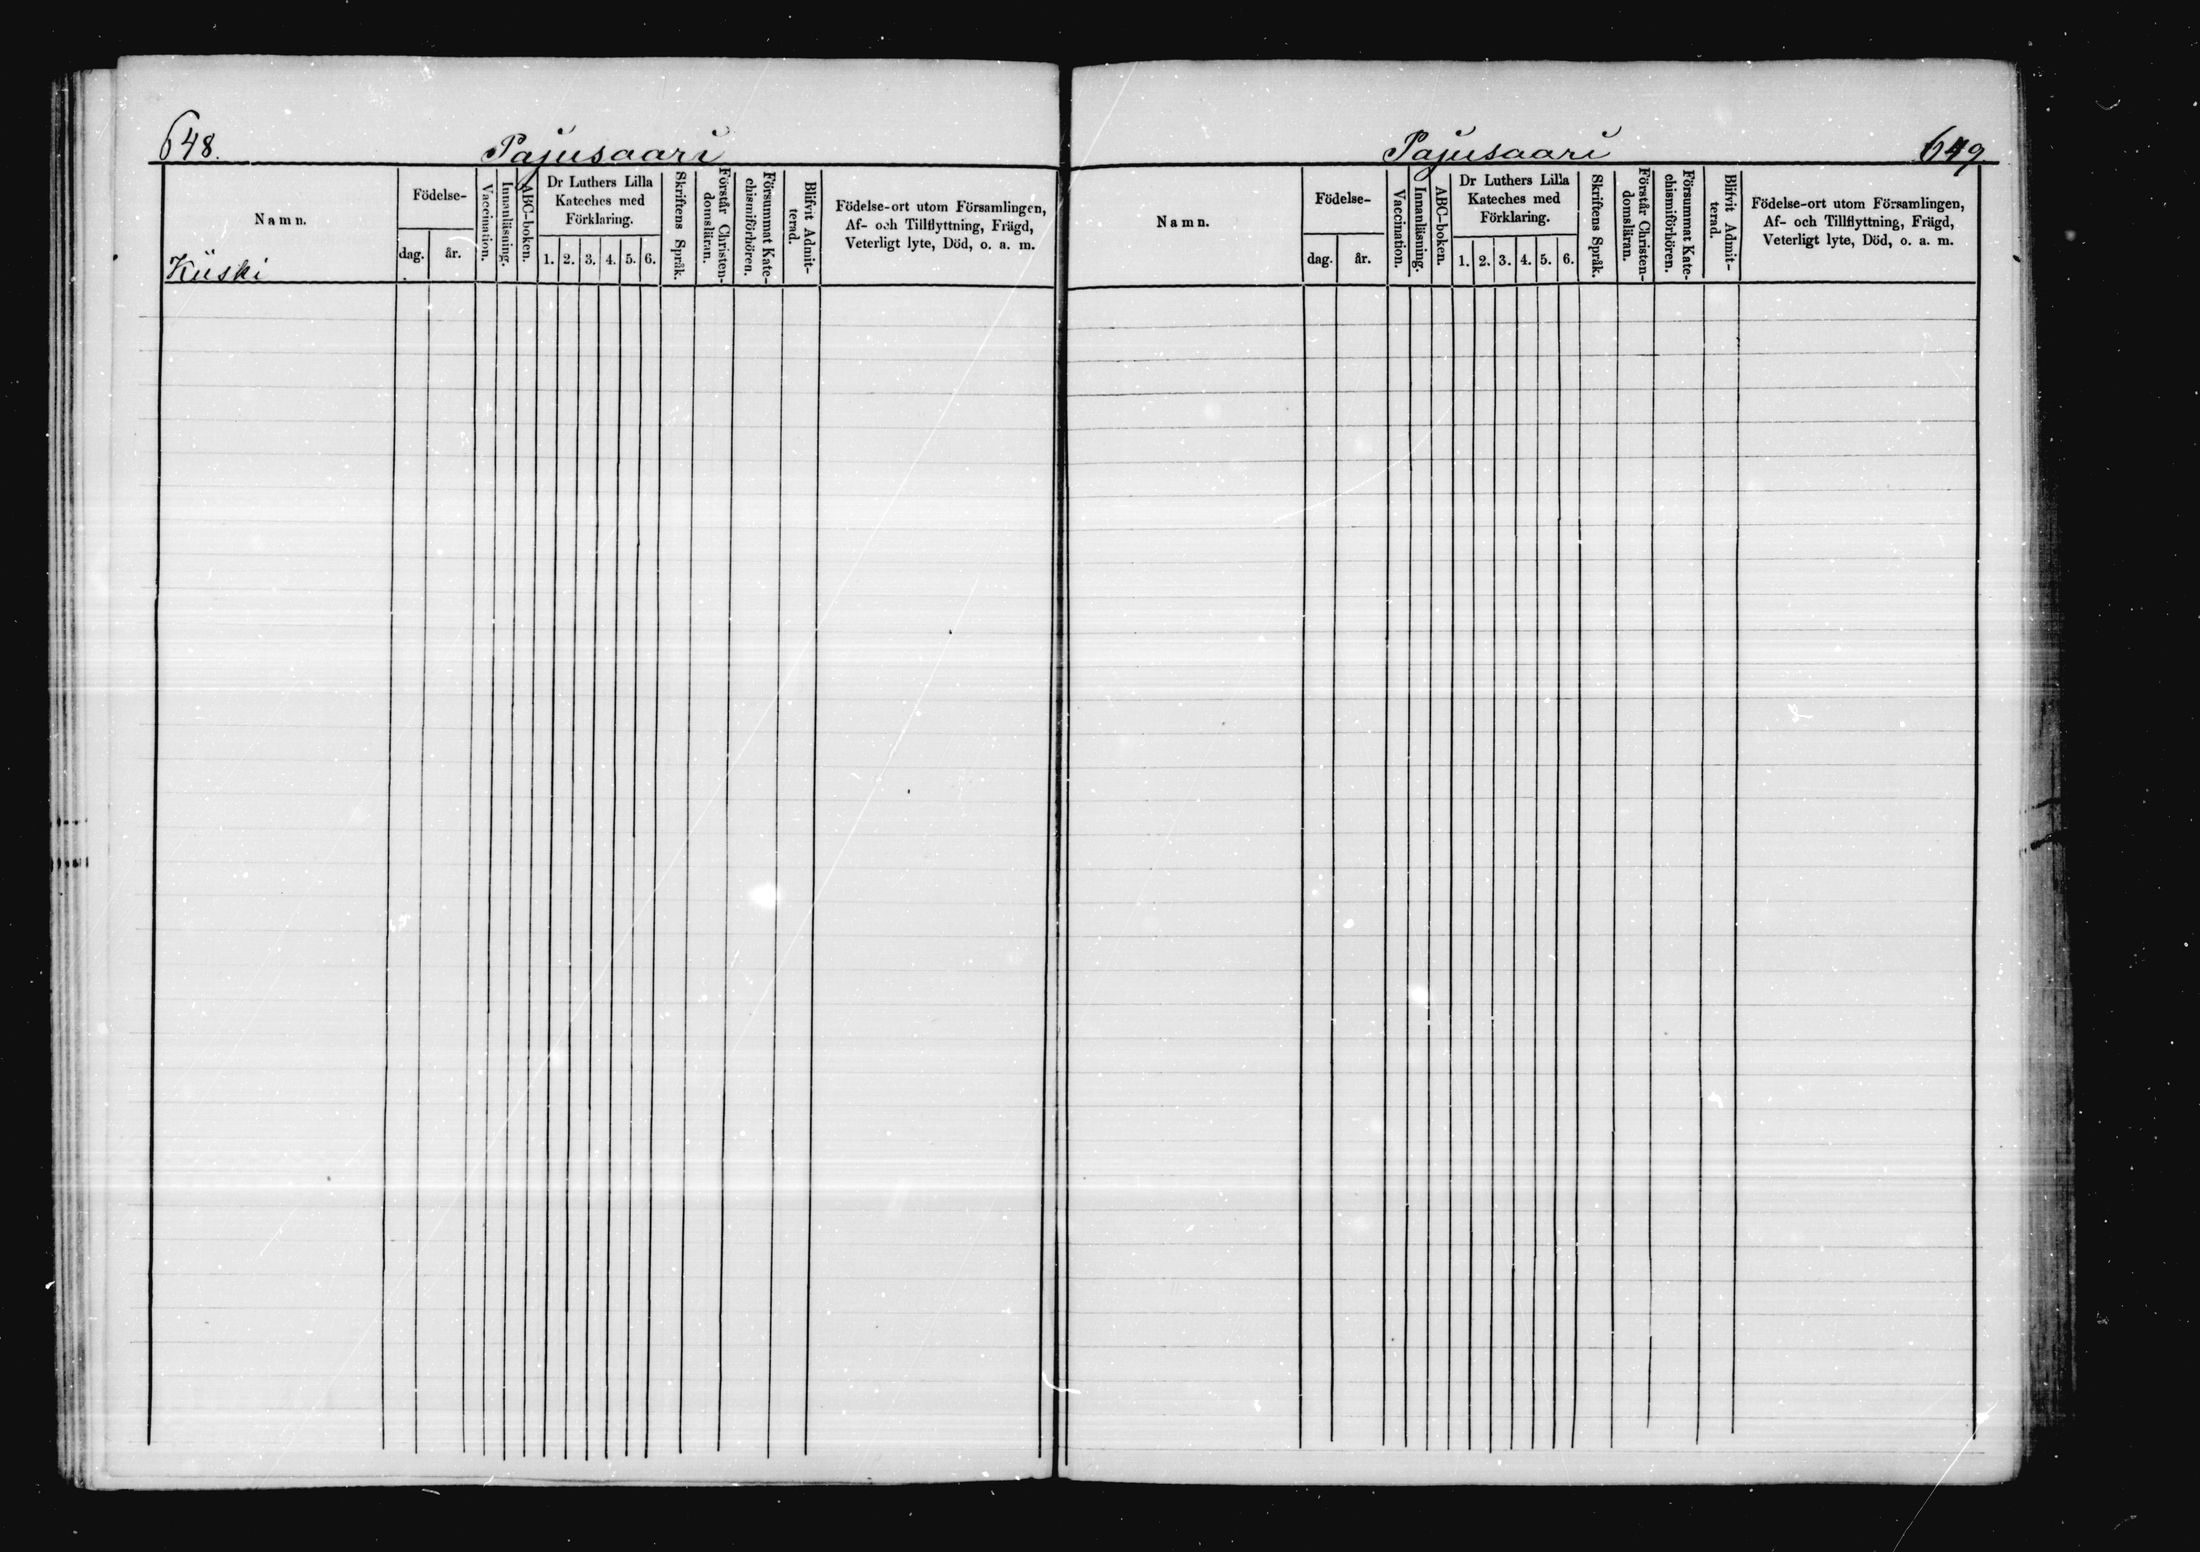 648.
Pajusaari
Namn.
Födelse-
dag.
år.
Vaccination.
Innanläsning.
ABC-boken.
Dr Luthers Lilla
Kateches med
Förklaring.
1. 2. 3. 4. 5. 6.
Skriftens Språk.
Förstår Christen-
domsläran.
Försummat Kate-
chismiförhören.
Blifvit Admit-
terad.
Födelse-ort utom Församlingen,
Af- och Tillflyttning, Frägd,
Veterligt lyte, Död, o. a. m.
Kiiski
Pajusaari
649
Namn.
Födelse-
dag.
år.
Vaccination.
Innanläsning.
ABC-boken.
Dr Luthers Lilla
Kateches med
Förklaring.
1. 2. 3. 4. 5. 6.
Skriftens Språk.
Förstår Christen-
domsläran.
Försummat Kate-
chismiförhören.
Blifvit Admit-
terad.
Födelse-ort utom Församlingen,
Af- och Tillflyttning, Frägd,
Veterligt lyte, Död, o. a. m.